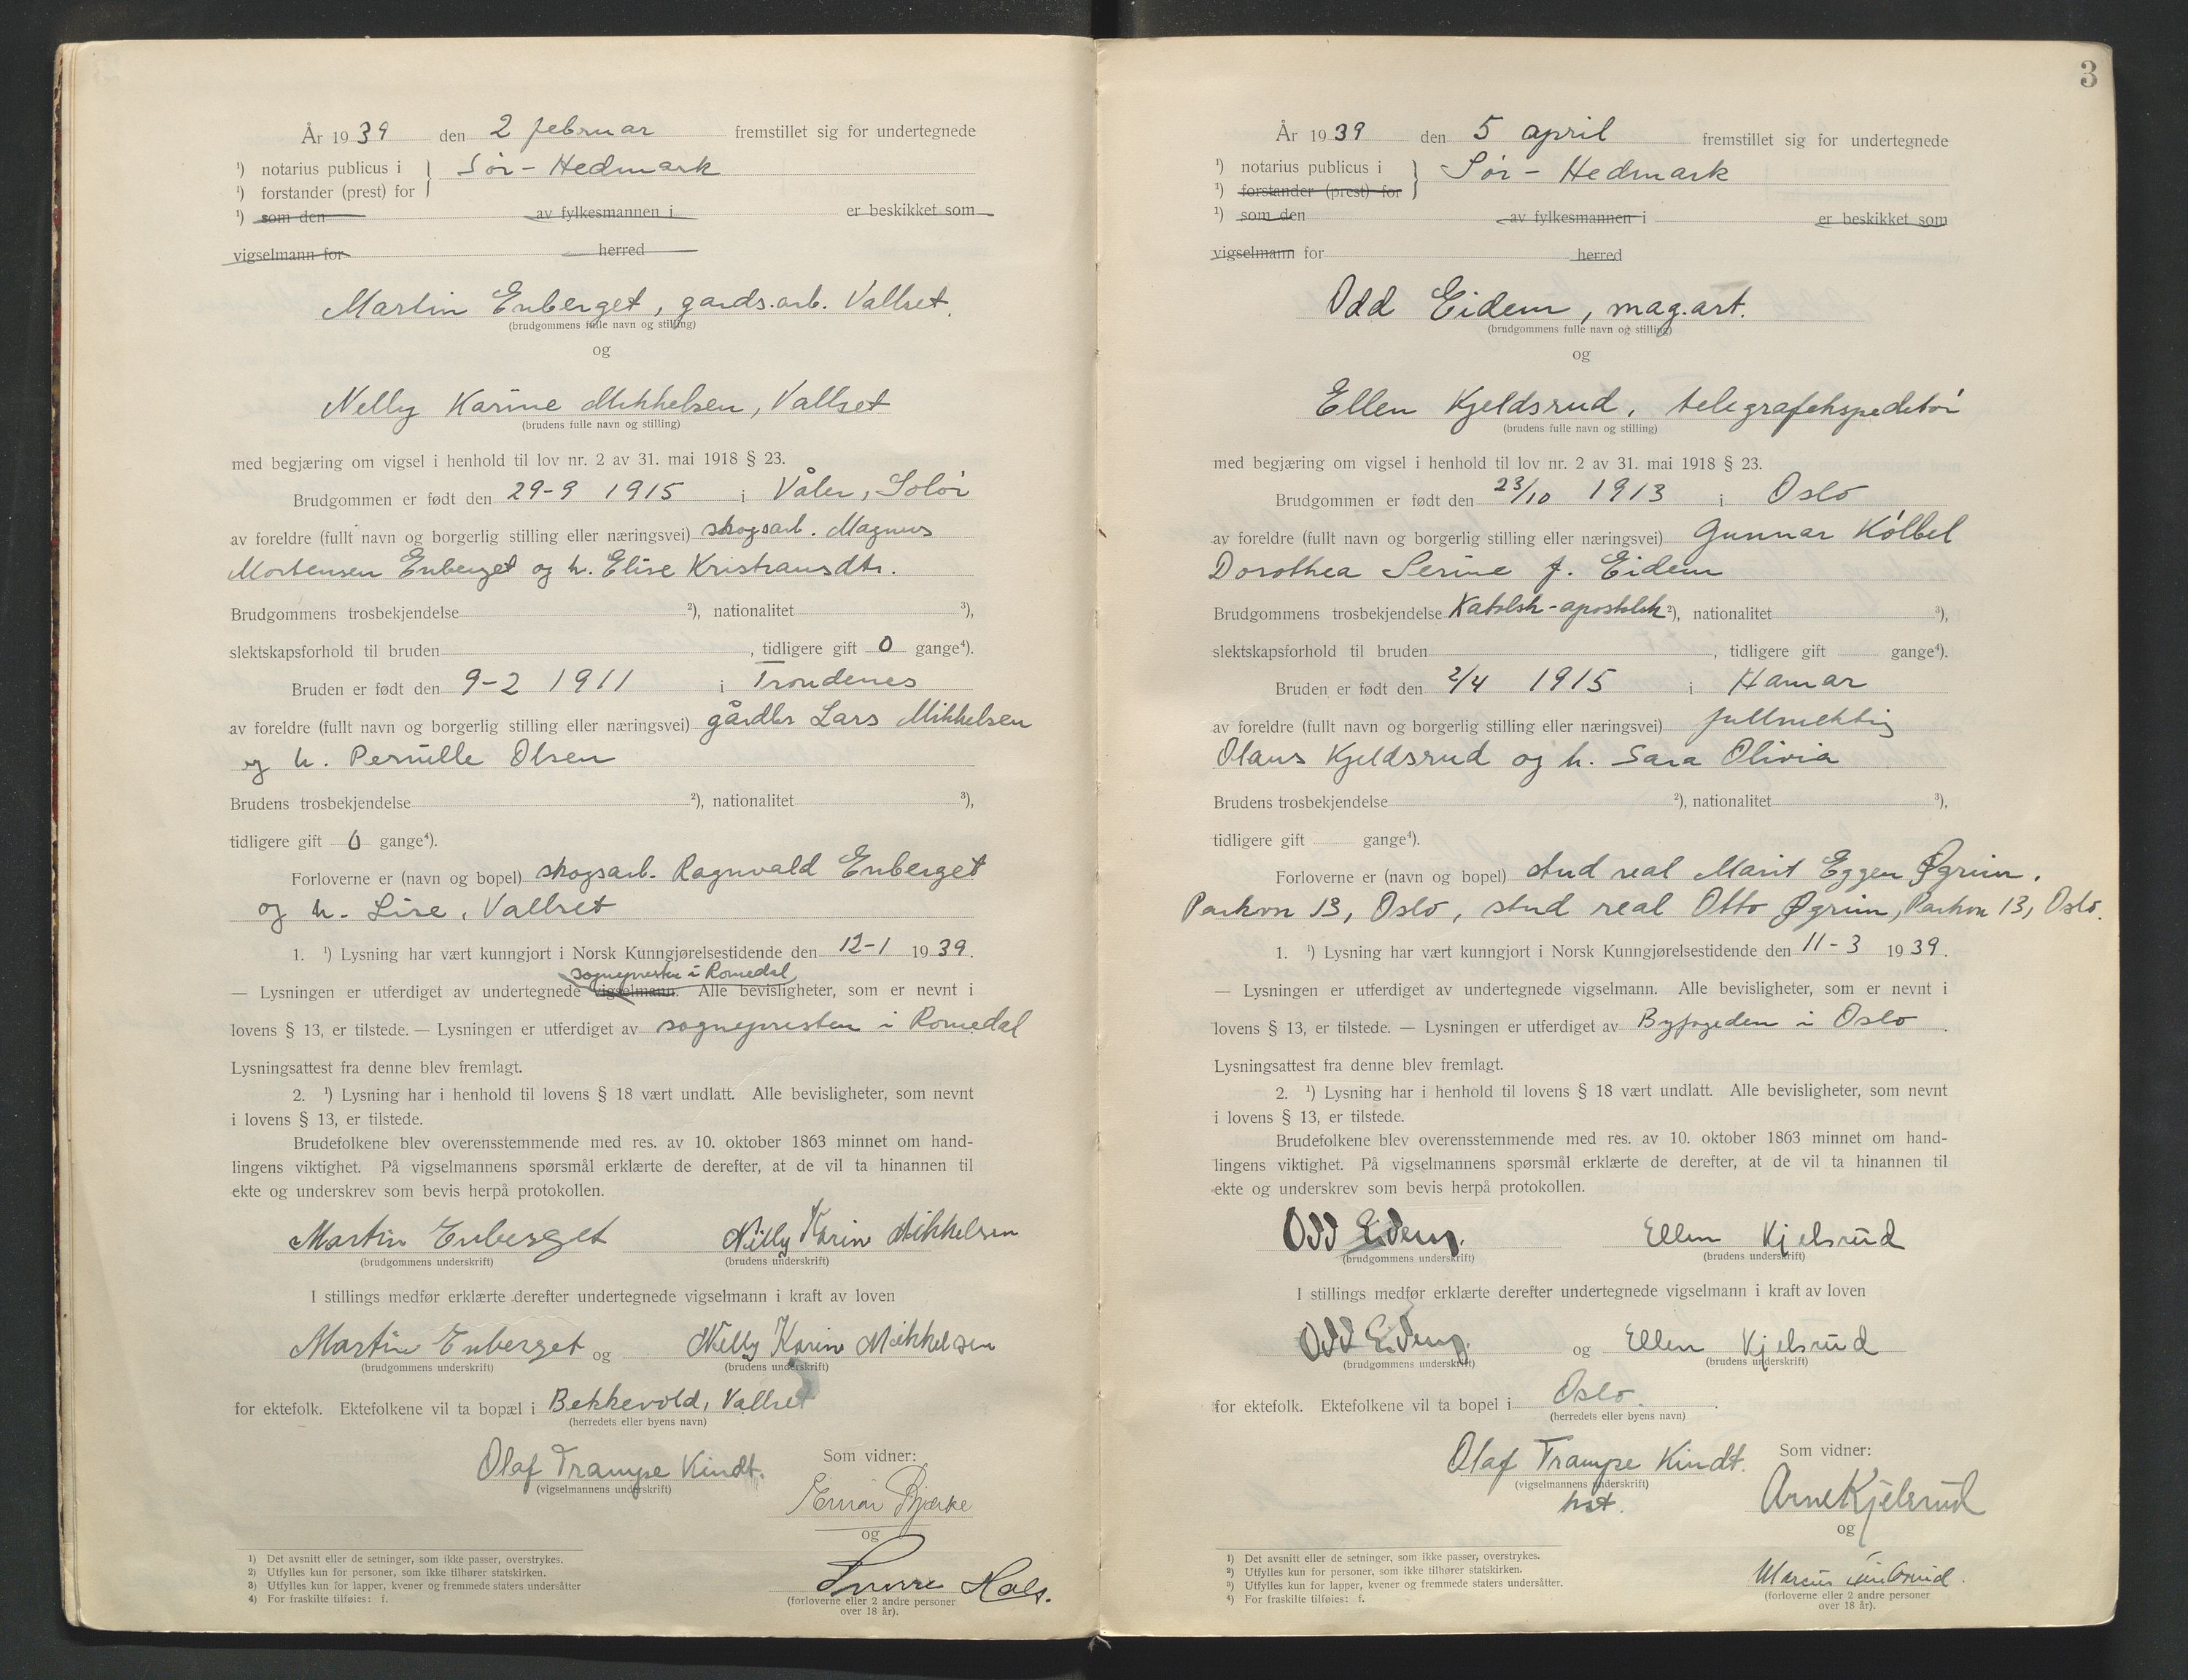 År 1939 den 2 februar fremstillet sig for undertegnede
¹) notarius publicus i } Sør-Hedmark
¹) forstander (prest) for
¹) som den av fylkesmannen i er beskikket som
vigselmann for herred
Martin Enberget, gards.arb. Vallset.
(brudgommens fulle navn og stilling)
og
Nelly Karine Mikkelsen, Vallset
(brudens fulle navn og stilling)
med begjæring om vigsel i henhold til lov nr. 2 av 31. mai 1918 § 23.
Brudgommen er født den 29-9 1915 i Våler, Solør
av foreldre (fullt navn og borgerlig stilling eller næringsvei) skogsarb. Magnus
Mortensen Enberget og h. Elise Kristiansdtr.
Brudgommens trosbekjendelse ²), nationalitet ³),
slektskapsforhold til bruden , tidligere gift 0 gange⁴).
Bruden er født den 9-2 1911 i Trondenes
av foreldre (fullt navn og borgerlig stilling eller næringsvei) gårdbr Lars Mikkelsen
og h. Pernille Olsen
Brudens trosbekjendelse ²), nationalitet ³),
tidligere gift 0 gange⁴).
Forloverne er (navn og bopel) skogsarb. Ragnvald Enberget
og h. Lise, Vallset
1. ¹) Lysning har vært kunngjort i Norsk Kunngjørelsestidende den 12-1 1939.
sognepresten i Romedal
— Lysningen er utferdiget av undertegnede vigselmann. Alle bevisligheter, som er nevnt i
lovens § 13, er tilstede. — Lysningen er utferdiget av sognepresten i Romedal
Lysningsattest fra denne blev fremlagt.
2. ¹) Lysning har i henhold til lovens § 18 vært undlatt. Alle bevisligheter, som nevnt
i lovens § 13, er tilstede.
Brudefolkene blev overensstemmende med res. av 10. oktober 1863 minnet om hand-
lingens viktighet. På vigselmannens spørsmål erklærte de derefter, at de vil ta hinannen til
ekte og underskrev som bevis herpå protokollen.
Martin Enberget Nelly Karin Mikkelsen
(brudgommens underskrift) (brudens underskrift)
I stillings medfør erklærte derefter undertegnede vigselmann i kraft av loven
Martin Enberget og Nelly Karin Mikkelsen
(brudgommens underskrift) (brudens underskrift)
for ektefolk. Ektefolkene vil ta bopæl i Bekkevold, Vallset
(herredets eller byens navn)
Olaf Trampe Kindt.
(vigselmannens underskrift)
Som vidner:
Einar Bjerke
og
Sverre Hals.
(forloverne eller 2 andre personer
over 18 år).
1) Det avsnitt eller de setninger, som ikke passer, overstrykes.
2) Utfylles kun for personer, som ikke tilhører statskirken.
3) Utfylles kun for lapper, kvener og fremmede staters undersåtter
4) For fraskilte tilføies: f.
3
År 1939 den 5 april fremstillet sig for undertegnede
¹) notarius publicus i } Sør-Hedmark
¹) forstander (prest) for
¹) som den av fylkesmannen i er beskikket som
vigselmann for herred
Odd Eidem, mag.art.
(brudgommens fulle navn og stilling)
og
Ellen Kjeldsrud, telegrafekspeditør
(brudens fulle navn og stilling)
med begjæring om vigsel i henhold til lov nr. 2 av 31. mai 1918 § 23.
Brudgommen er født den 23/10 1913 i Oslo
av foreldre (fullt navn og borgerlig stilling eller næringsvei) Gunnar Kølbel
Dorothea Serine f. Eidem
Brudgommens trosbekjendelse Katolsk-apostolsk ²), nationalitet ³),
slektskapsforhold til bruden , tidligere gift gange⁴).
Bruden er født den 2/4 1915 i Hamar
av foreldre (fullt navn og borgerlig stilling eller næringsvei) fullmektig
Olaus Kjeldsrud og h. Sara Olivia
Brudens trosbekjendelse ²), nationalitet ³),
tidligere gift gange⁴).
Forloverne er (navn og bopel) stud real Marit Eggen Øgrim,
Parkvn 13, Oslo, stud real Otto Øgrim, Parkvn 13, Oslo.
1. ¹) Lysning har vært kunngjort i Norsk Kunngjørelsestidende den 11-3 1939.
— Lysningen er utferdiget av undertegnede vigselmann. Alle bevisligheter, som er nevnt i
lovens § 13, er tilstede. — Lysningen er utferdiget av Byfogeden i Oslo.
Lysningsattest fra denne blev fremlagt.
2. ¹) Lysning har i henhold til lovens § 18 vært undlatt. Alle bevisligheter, som nevnt
i lovens § 13, er tilstede.
Brudefolkene blev overensstemmende med res. av 10. oktober 1863 minnet om hand-
lingens viktighet. På vigselmannens spørsmål erklærte de derefter, at de vil ta hinannen til
ekte og underskrev som bevis herpå protokollen.
Odd Eidem. Ellen Kjelsrud
(brudgommens underskrift) (brudens underskrift)
I stillings medfør erklærte derefter undertegnede vigselmann i kraft av loven
Odd Eidem. og Ellen Kjelsrud
(brudgommens underskrift) (brudens underskrift)
for ektefolk. Ektefolkene vil ta bopel i Oslo.
(herredets eller byens navn)
Olaf Trampe Kindt.
(vigselmannens underskrift)
Som vidner:
Arne Kjelsrud
og
Marcus
(forloverne eller 2 andre personer
over 18 år).
1) Det avsnitt eller de setninger, som ikke passer, overstrykes.
2) Utfylles kun for personer, som ikke tilhører statskirken.
3) Utfylles kun for lapper, kvener og fremmede staters undersåtter.
4) For fraskilte tilføies: f.